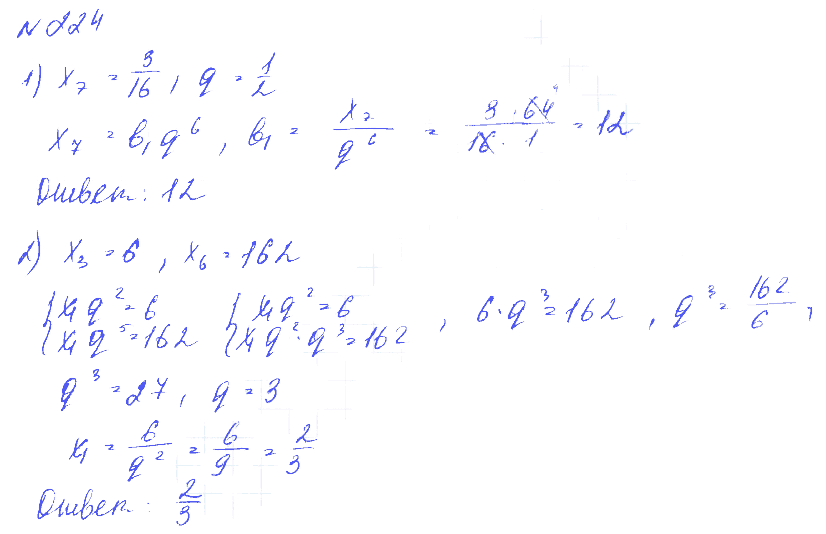 №224
1) x₇ = 3/16, q = 1/2
x₇ = b₁q⁶, b₁ = x₇/q⁶ = (3·64⁴)/(16·1) = 12
Ответ: 12
2) x₃ = 6, x₆ = 162
{x₁q² = 6 {x₁q² = 6
{x₁q⁵ = 162 {x₁q²·q³ = 162, 6·q³ = 162, q³ = 162/6,
q³ = 27, q = 3
x₁ = 6/q² = 6/9 = 2/3
Ответ: 2/3